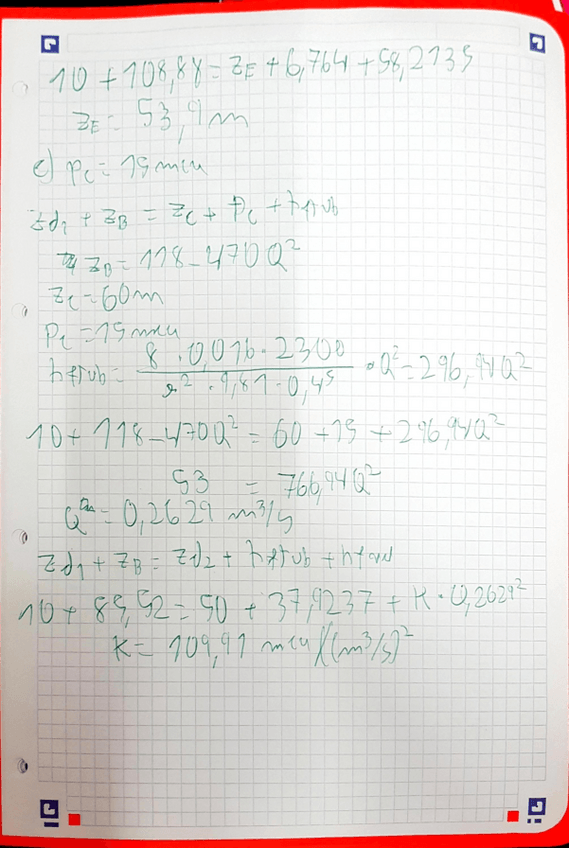 10 + 108,88 = zE + 6,764 + 58,2135
zE = 53,9 m
c) Pc = 15 mca
zd1 + zB = zc + Pc + hftub
zB = 118 - 470 Q²
zc = 60 m
Pc = 15 mca
hftub = (8 · 0,016 · 2300) / (π² · 9,81 · 0,4⁵) · Q² = 296,94 Q²
10 + 118 - 470 Q² = 60 + 15 + 296,94 Q²
53 = 766,94 Q²
Q = 0,2629 m³/s
zd1 + zB = zd2 + hftub + hfval
10 + 85,52 = 50 + 37,9237 + K · 0,2629²
K = 109,91 mca/(m³/s)²